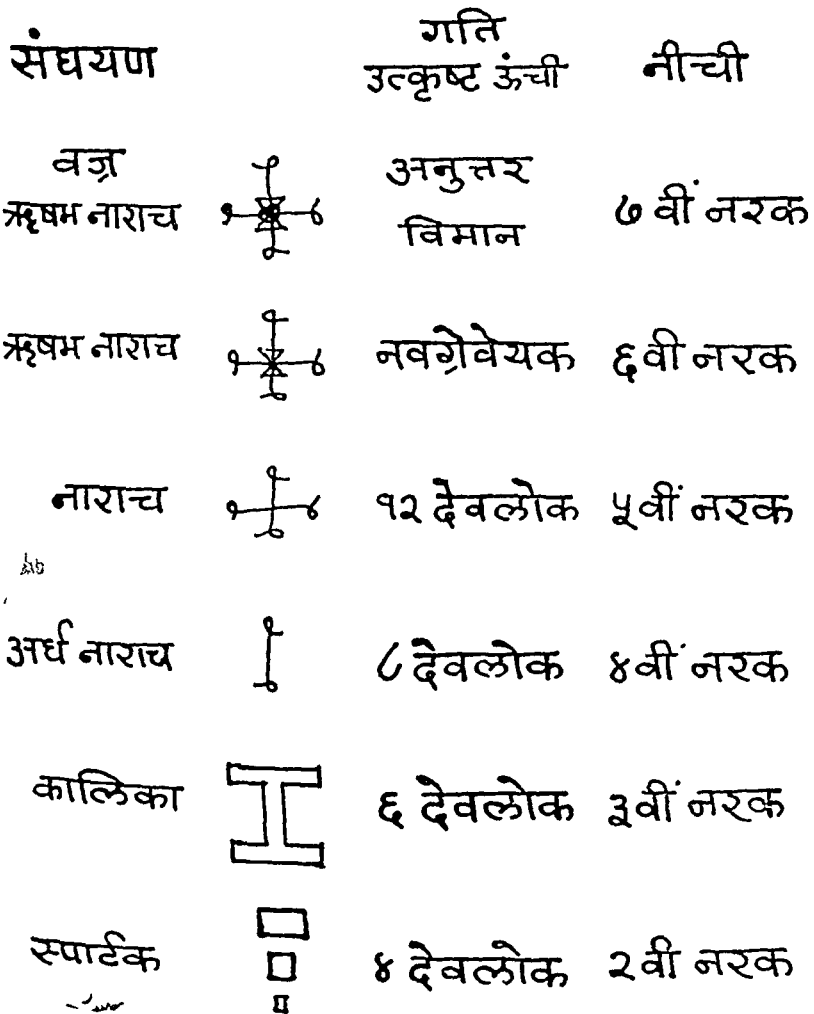 गति
संघयण उत्कृष्ट ऊंची नीची
वज्र अनुत्तर
ऋषम नाराच विमान ७ वीं नरक
ऋषम नाराच नवग्रेवेयक ६वी नरक
नाराच १२ देवलोक ५वीं नरक
अर्ध नाराच ८ देवलोक ४वीं नरक
कालिका ६ देवलोक ३वीं नरक
स्पार्टक ४ देवलोक २वी नरक